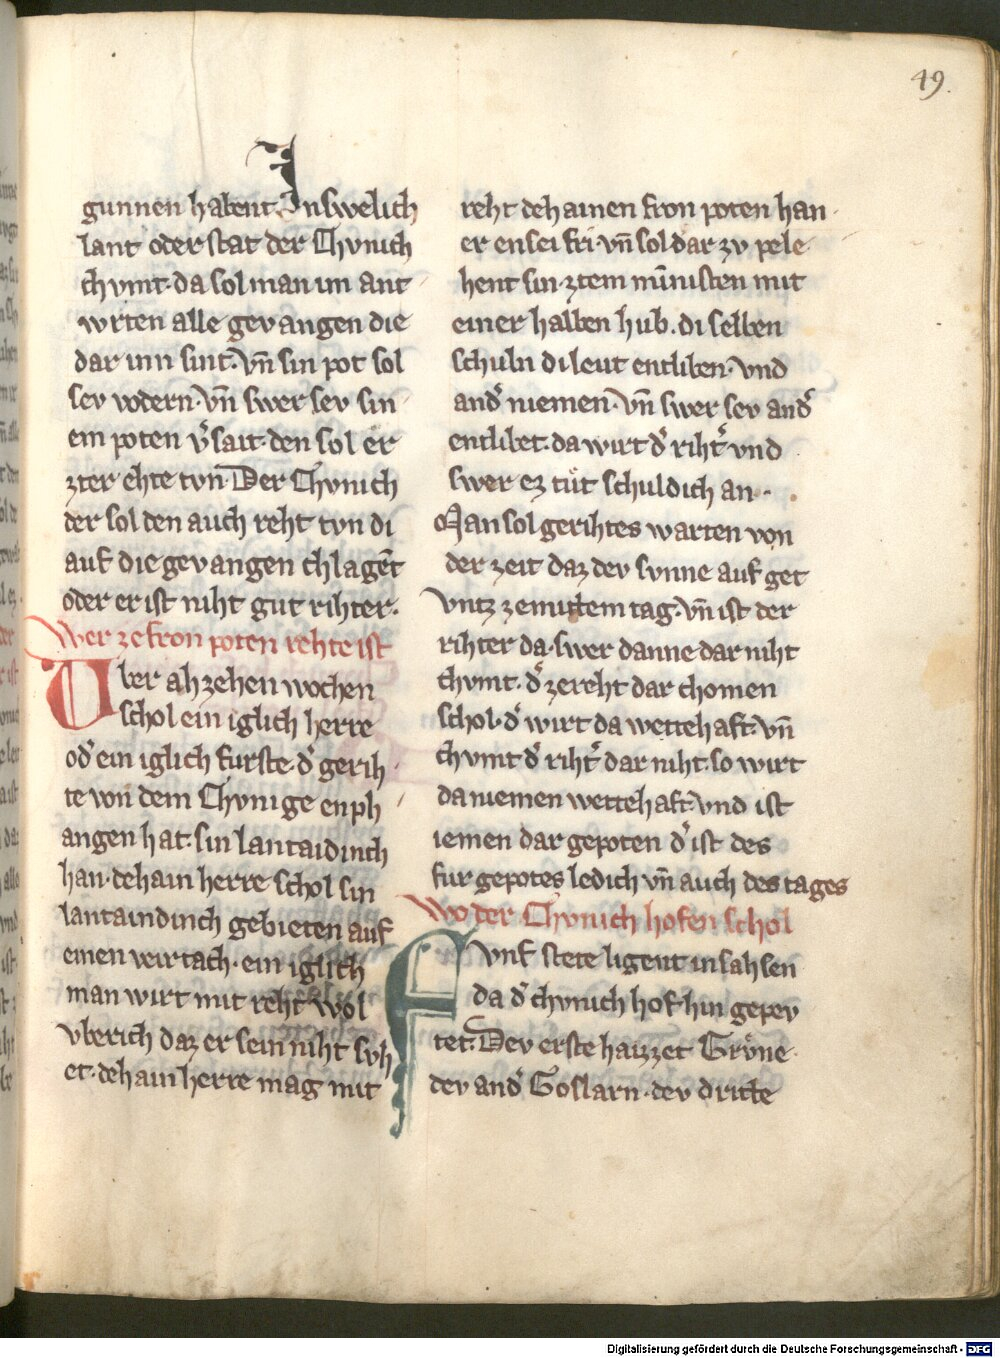 49.
gunnen habent. In swelich
lant oder stat der Chvnich
chvmt. da sol man im ant
wrten alle gevangen die
dar inn sint. vn̄ sin pot sol
sev vodern. vn̄ swer sev sin
em poten v̾sait. den sol er
zter ehte tvn. Der Chvnich
der sol den auch reht tvn di
auf die gevangen chlagēt
oder er ist niht gut rihter.
Wer ze fron poten rehte ist
Vber ahzehen wochen
schol ein iglich herre
od̾ ein iglich furste. d̾ gerih
te von dem Chvnige enph
angen hat. sin lantaidinch
han. dehain herre schol sin
lantaindinch gebieten auf
einen veirtach. ein iglich
man wirt mit reht wol
vberich daz er sein niht svh
et. dehain herre mag mit
reht dehainen fron poten han
er en sei fri. vn̄ sol dar zv pele
hent sin. ztem minnisten mit
einer halben hub. di selben
schuln di leut entliben. vnd
and̾ niemen. vn̄ swer sev and̾
entlibet. da wirt d̾ riht̾ vnd
swer ez tůt schuldich an.
Man sol gerihtes warten von
der zeit daz dev svnne auf get
vntz ze mittem tag. vn̄ ist der
rihter da. swer danne dar niht
chvmt. d̾ ze reht dar chomen
schol. d̾ wirt da wettehaft. vn̄
chvmt d̾ riht̾ dar niht. so wirt
da niemen wettehaft. vnd ist
iemen dar gepoten d̾ ist des
fur gepotes ledich vn̄ auch des tages
Wo der Chvnich hofen schol
Fvnf stete ligent in sahsen
da d̾ chvnich hof hin gepev
tet. Dev erste haizzet Grvͤne.
dev and̾ Goslarn. dev dritte
Digitalisierung gefördert durch die Deutsche Forschungsgemeinschaft - DFG